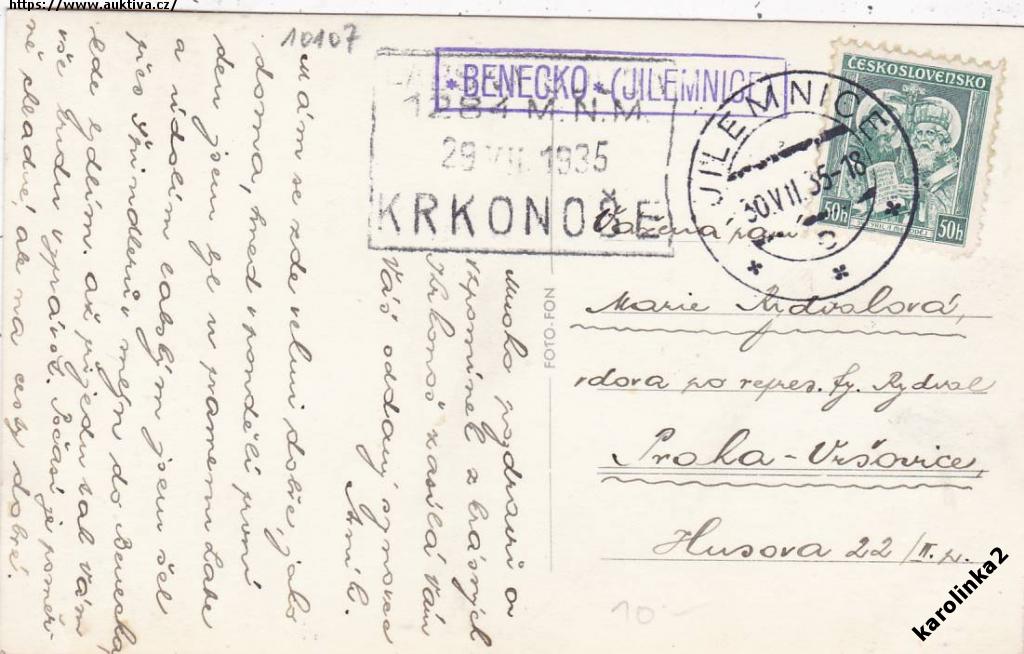 https://www.auktiva.cz/
10107
*BENECKO*(JILEMNICE
1284 M.N.M.
29 VII. 1935
KRKONOŠE
JILEMNICE
30.VII.35-18
ČESKOSLOVENSKO
50h
50h
Mám se zde velmi dobře, jako
doma, hned v pondělí první
den jsem byl u pramenu Labe
a údolím labským jsem šel
přes Špindlerův mlejn do Benecka,
kde bydlím. až přijedu tak Vám
vše hrubu vypráv. Počasí je poměr-
ně chladné, ale na cesty dobré.
Mnoho pozdravů a
vzpomínek z krásných
Krkonoš zasílá Vám
Váš oddaný synovec
FOTO-FON
Vážená paní
Marie Rydvalová,
vdova po repres. fy. Rydval
Praha-Vršovice,
Husova 22/II.p.
10.-
karolinka2